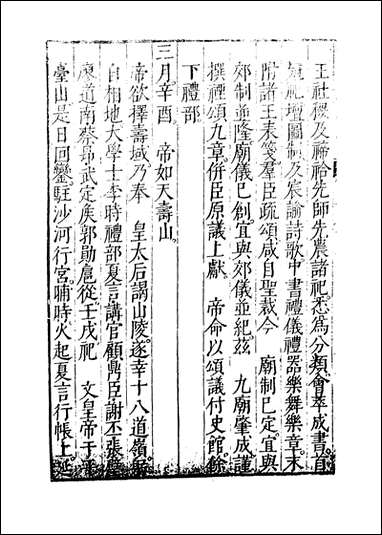 王社稷及禘祫先師先農諸祀悉為分類會萃成書首
祀壇圖制及宸諭詩歌中書禮儀禮器樂舞樂章末
附諸王表箋羣臣疏頌咸自聖裁今 廟制已定宜與
郊制並隆廟儀已創宜與郊儀並紀茲 九廟肇成謹
撰禋頌九章併臣原議上獻 帝命以頌議付史館餘
下禮部
三月辛酉 帝如天壽山
帝欲擇壽域乃奉 皇太后謁山陵遂幸十八道嶺
自相地大學士李時禮部夏言講官顧鼎臣謝丕張
廖道南蔡昂武定侯郭勛扈從壬戌祀 文皇帝于
臺山是日回鑾駐沙河行宮晡時火起夏言行帳上延